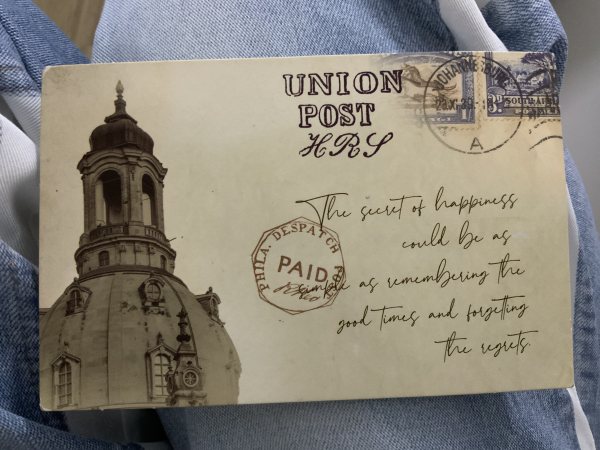 UNION
POST
HRS
JOHANNESBURG
A
SOUTH AFRICA
PHILA. DESPATCH POST
PAID
The secret of happiness
could be as
simple as remembering the
good times and forgetting
the regrets.